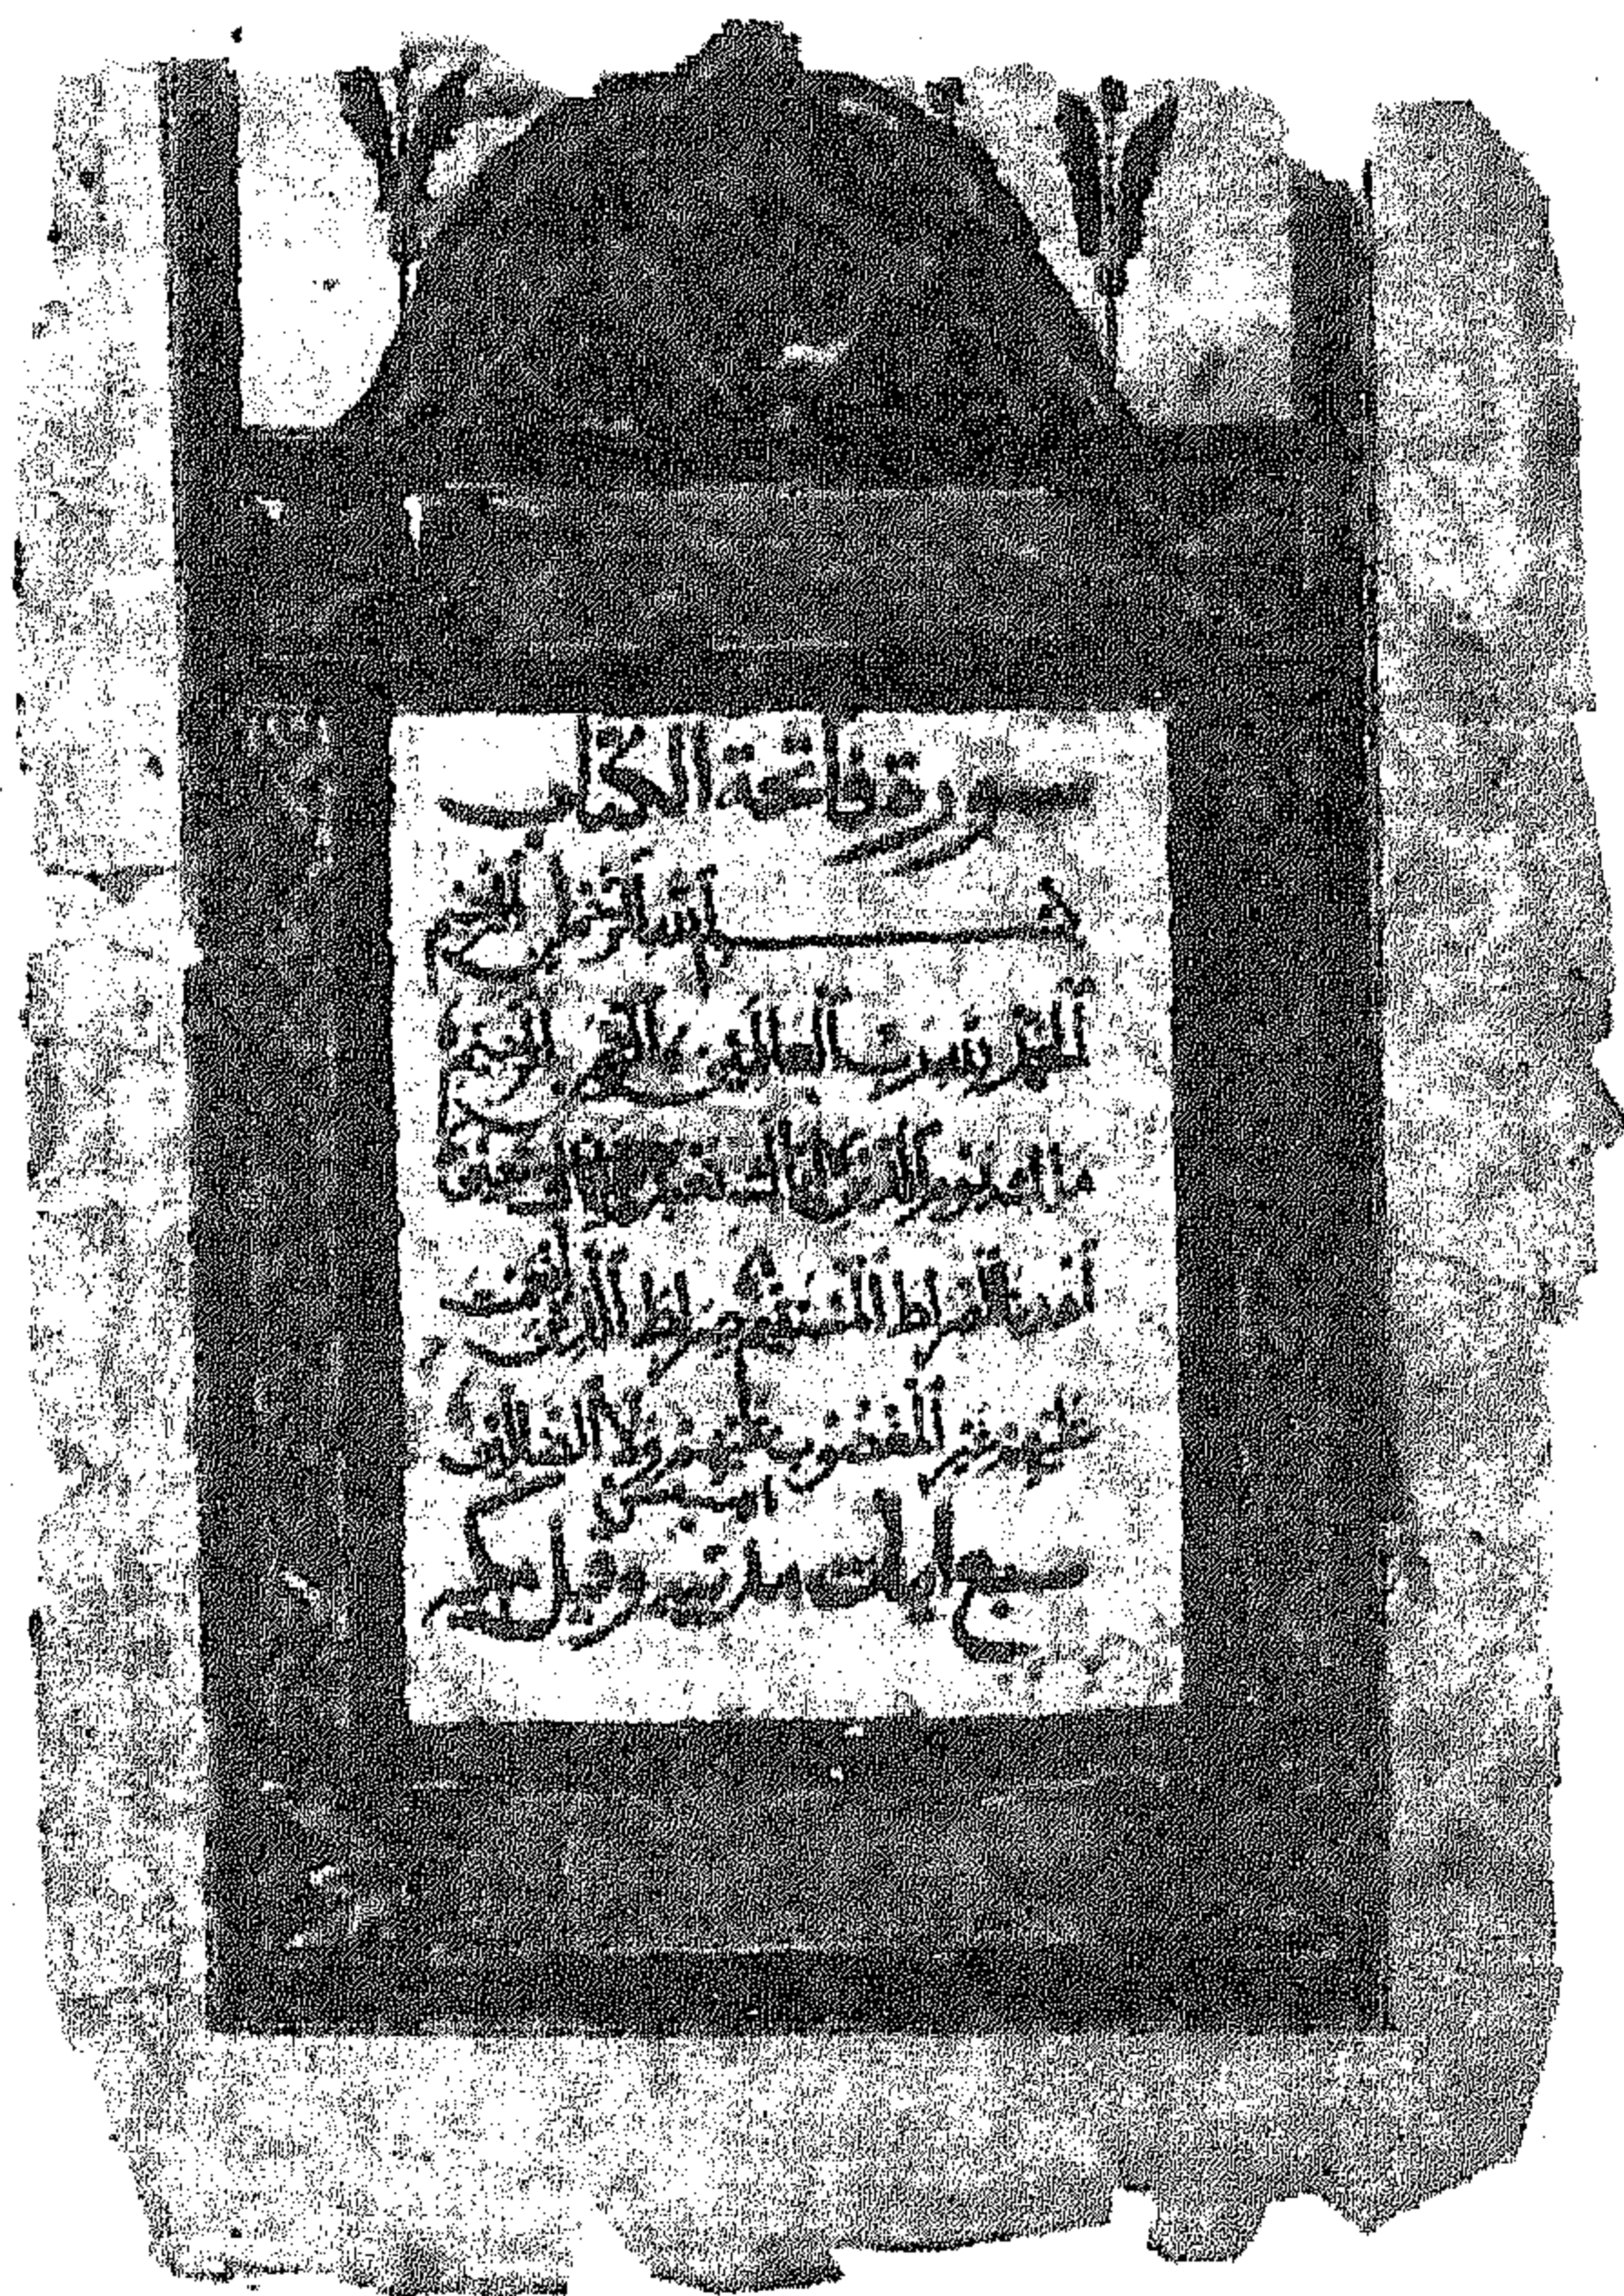 سورة فاتحة الكتاب
بسم الله الرحمن الرحيم
الحمد لله رب العالمين الرحمن الرحيم
ملك يوم الدين اياك نعبد واياك نستعين
اهدنا الصراط المستقيم صراط الذين انعمت
عليهم غير المغضوب عليهم ولا الضالين
امين
سبع ايات وقيل